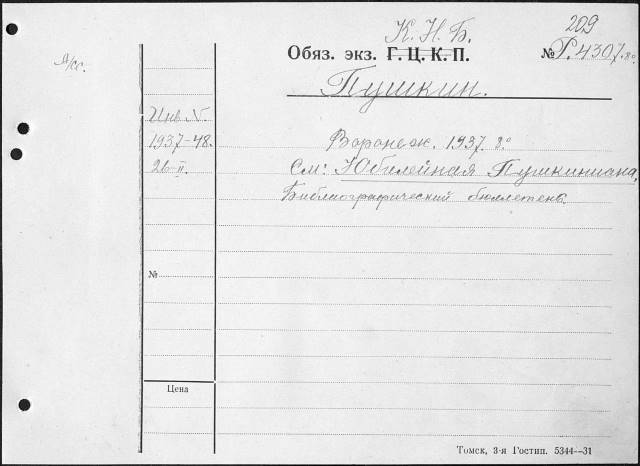 209
К. Н. Б.
Обяз. экз. Г. Ц. К. П.
№ Р. 4307. 8°
Пушкин.
Инв N.
1937-48.
26-II.
Воронеж. 1937. 8°
См: Юбилейная Пушкиниана,
Библиографический бюллетень.
№
Цена
Томск, 3-я Гостип. 5344—31